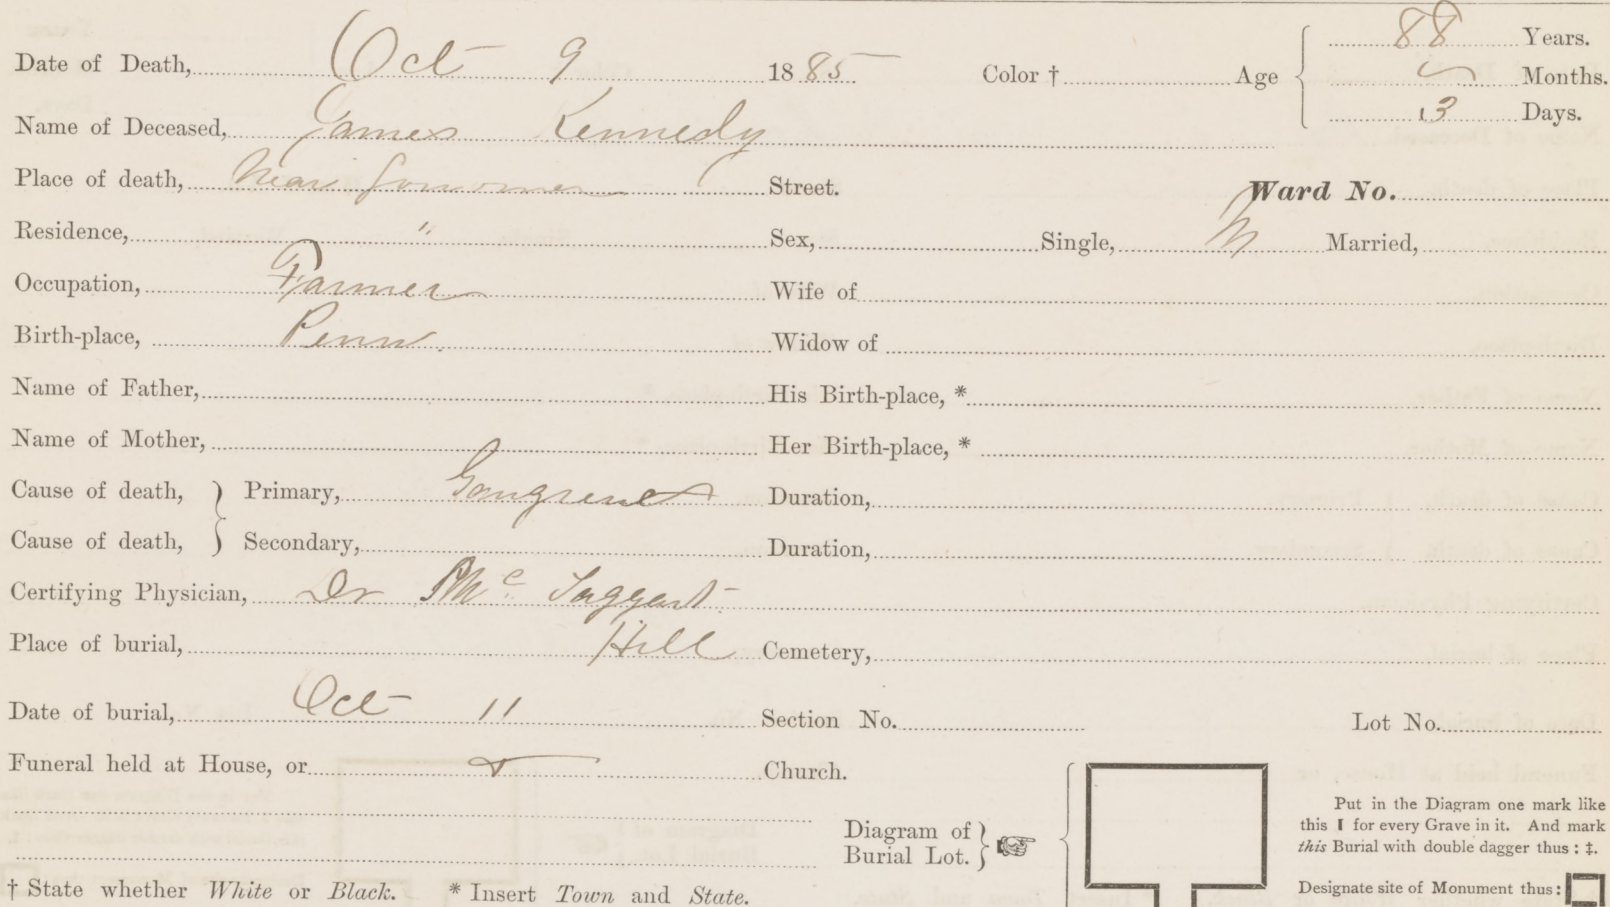 Date of Death, Oct 9 1885 Color † Age 88 Years.
Months.
13 Days.
Name of Deceased, James Kennedy
Place of death, Near Street. Ward No.
Residence, " Sex, Single, M Married,
Occupation, Farmer Wife of
Birth-place, Penn. Widow of
Name of Father, His Birth-place, *
Name of Mother, Her Birth-place, *
Cause of death, } Primary, Gangrene Duration,
Cause of death, } Secondary, Duration,
Certifying Physician, Dr Mc Taggart
Place of burial, Hill Cemetery,
Date of burial, Oct 11 Section No. Lot No.
Funeral held at House, or Church.
Diagram of
Burial Lot. }
Put in the Diagram one mark like
this I for every Grave in it. And mark
this Burial with double dagger thus : ‡.
Designate site of Monument thus :
† State whether White or Black. * Insert Town and State.